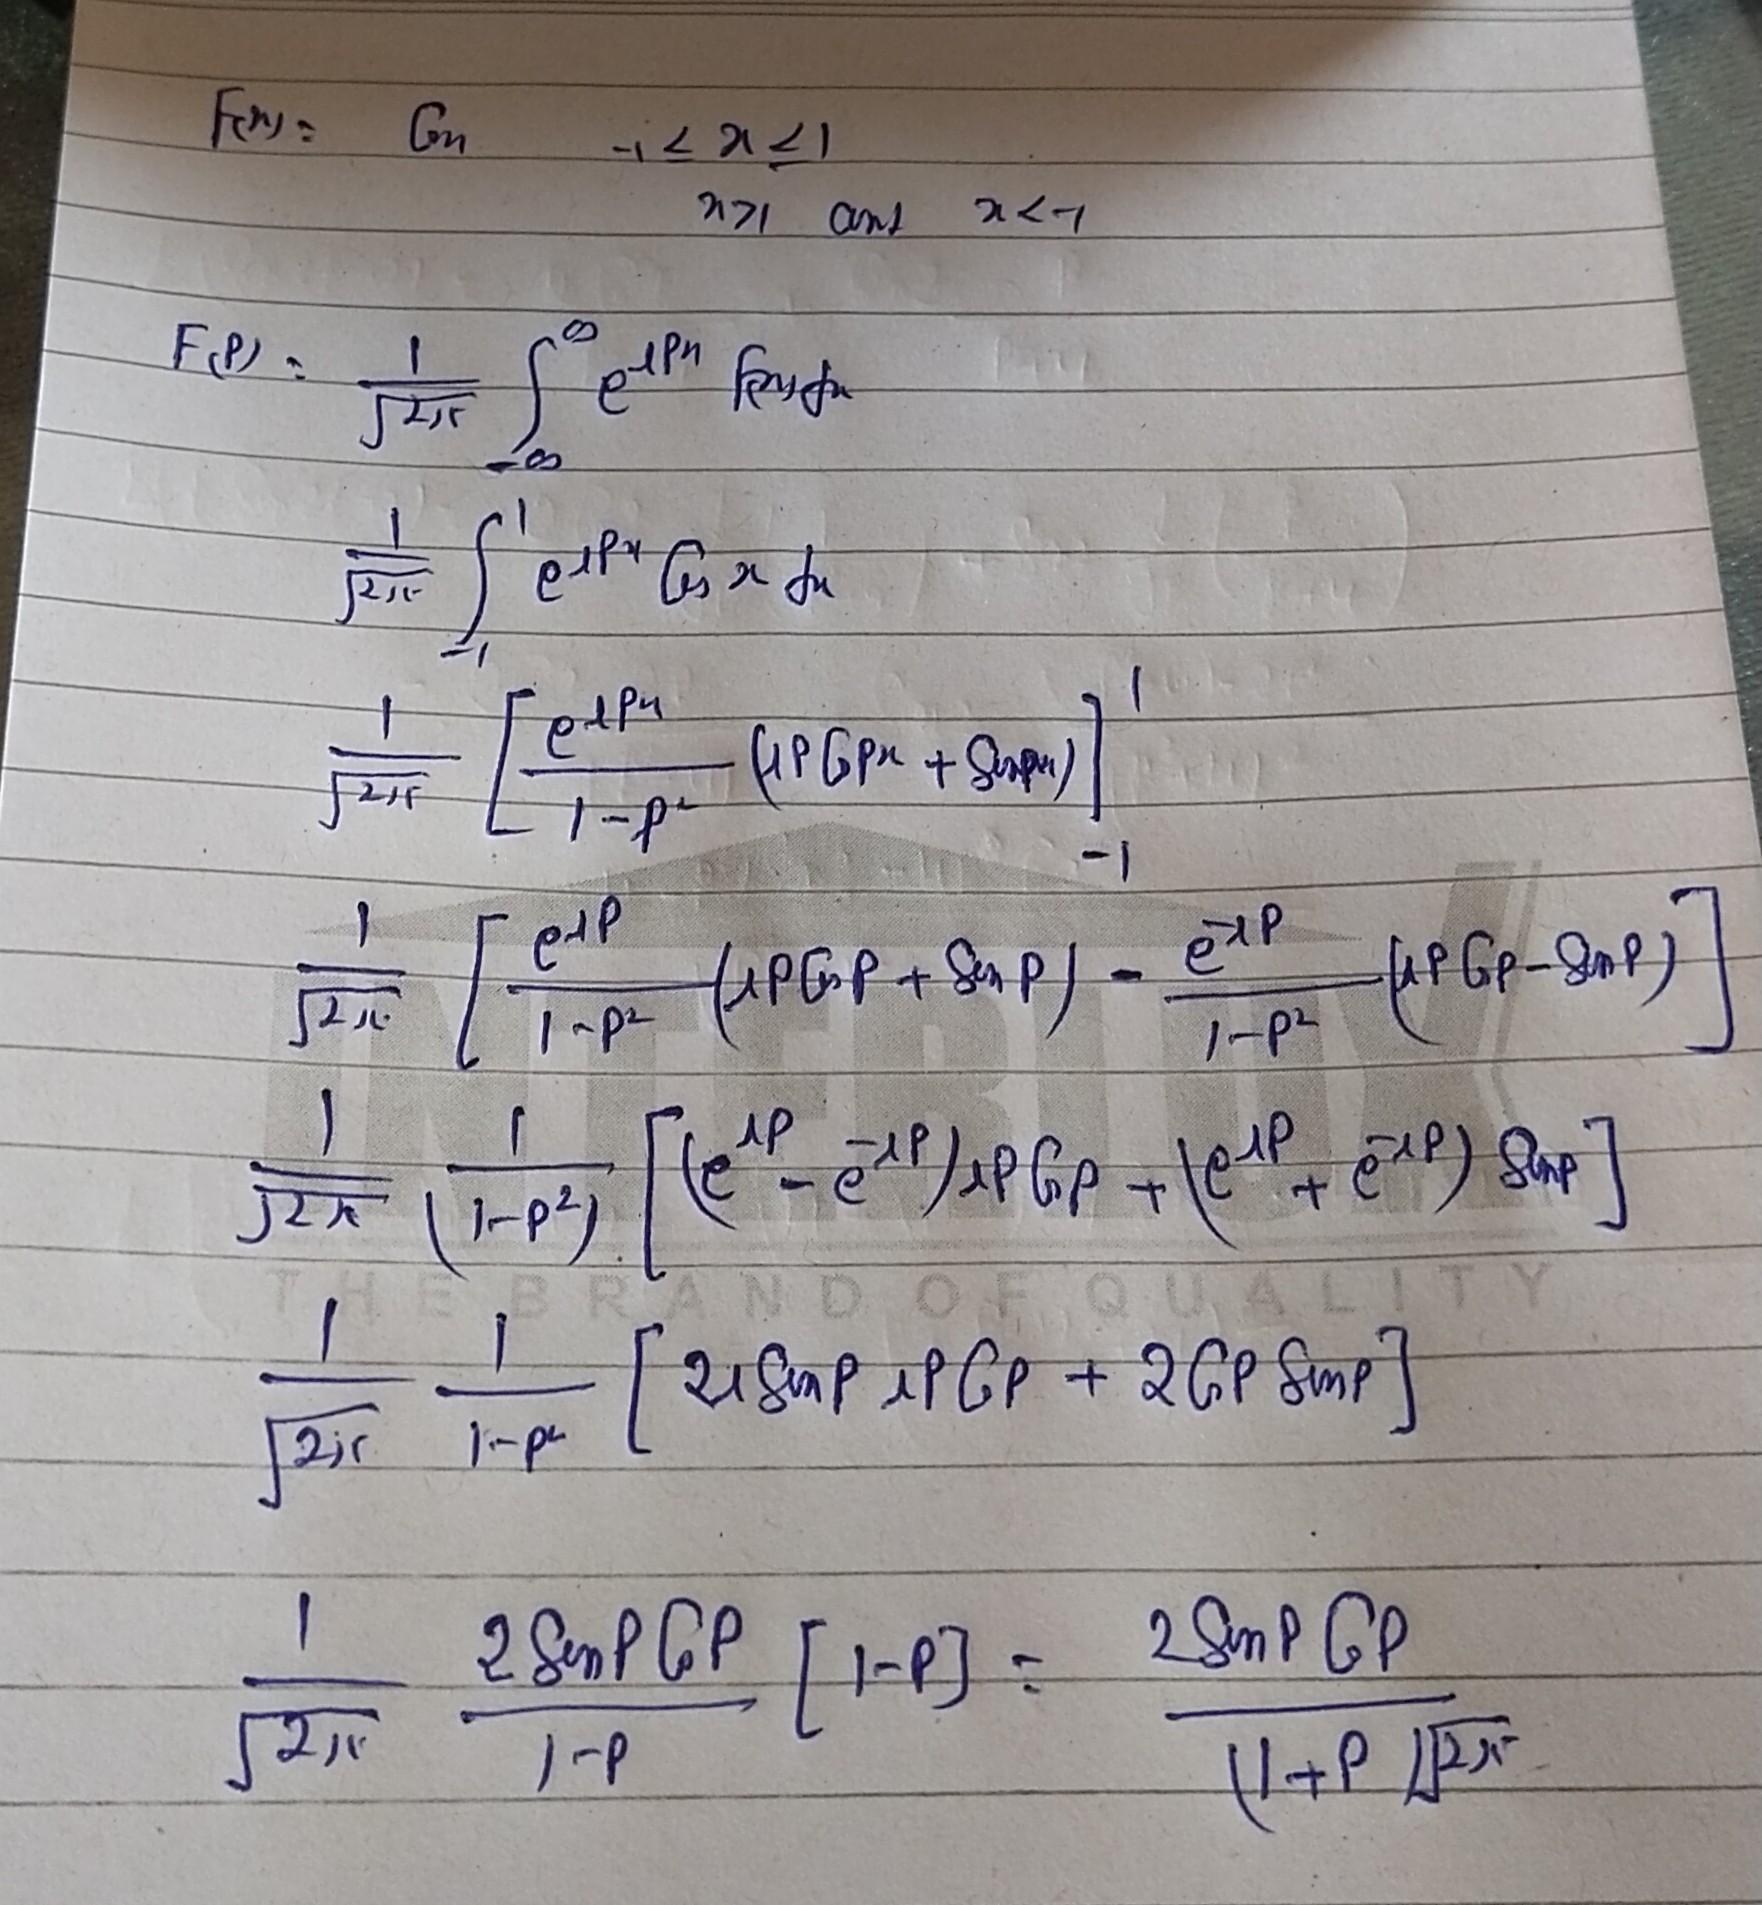 F(x) = Cos x -1 ≤ x ≤ 1
x>1 and x<-1
F(P) = 1/√2π ∫_{-∞}^{∞} e^{iPx} F(x) dx
1/√2π ∫_{-1}^{1} e^{iPx} Cos x dx
1/√2π [ e^{iPx}/1-P² (iP Cos Px + Sin Px) ]_{-1}^{1}
1/√2π [ e^{iP}/1-P² (iP Cos P + Sin P) - e^{-iP}/1-P² (iP Cos P - Sin P) ]
1/√2π 1/(1-P²) . [ (e^{iP} - e^{-iP}) iP Cos P + (e^{iP} + e^{-iP}) Sin P ]
INTERLUX
THE BRAND OF QUALITY
1/√2π 1/1-P² [ 2i Sin P iP Cos P + 2 Cos P Sin P ]
1/√2π 2 Sin P Cos P/1-P [1-P] = 2 Sin P Cos P/(1+P)√2π